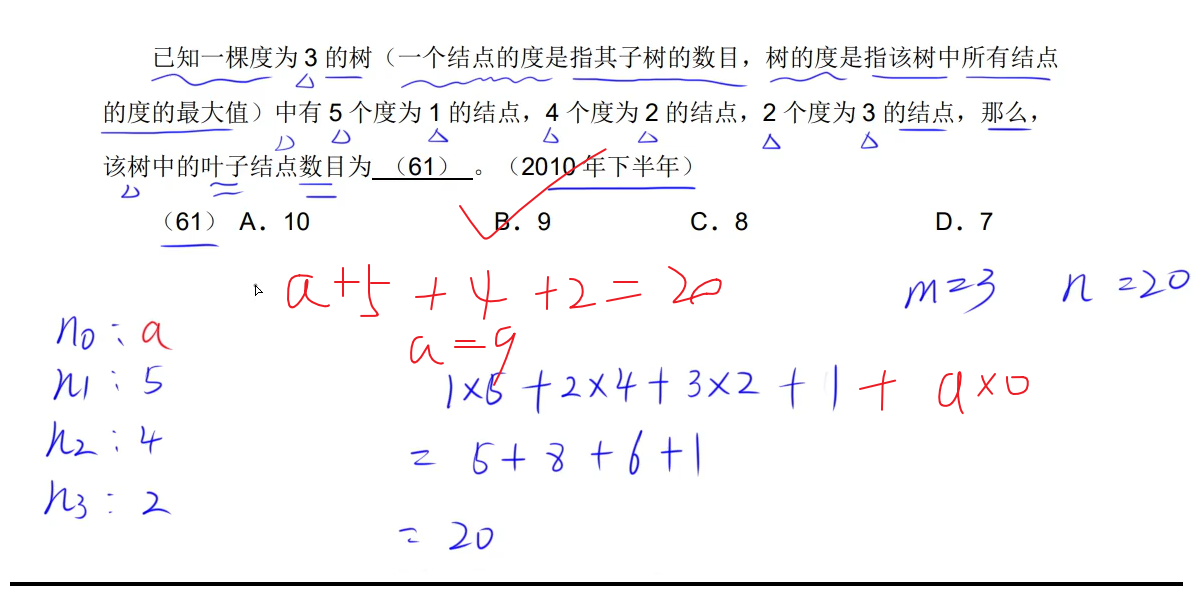 已知一棵度为 3 的树（一个结点的度是指其子树的数目，树的度是指该树中所有结点
的度的最大值）中有 5 个度为 1 的结点，4 个度为 2 的结点，2 个度为 3 的结点，那么，
该树中的叶子结点数目为 （61） 。（2010 年下半年）
（61） A．10 B．9 C．8 D．7
a+5+4+2=20 m=3 n=20
n0：a a=9
n1：5 1×5+2×4+3×2+1+a×0
n2：4 =5+8+6+1
n3：2 =20